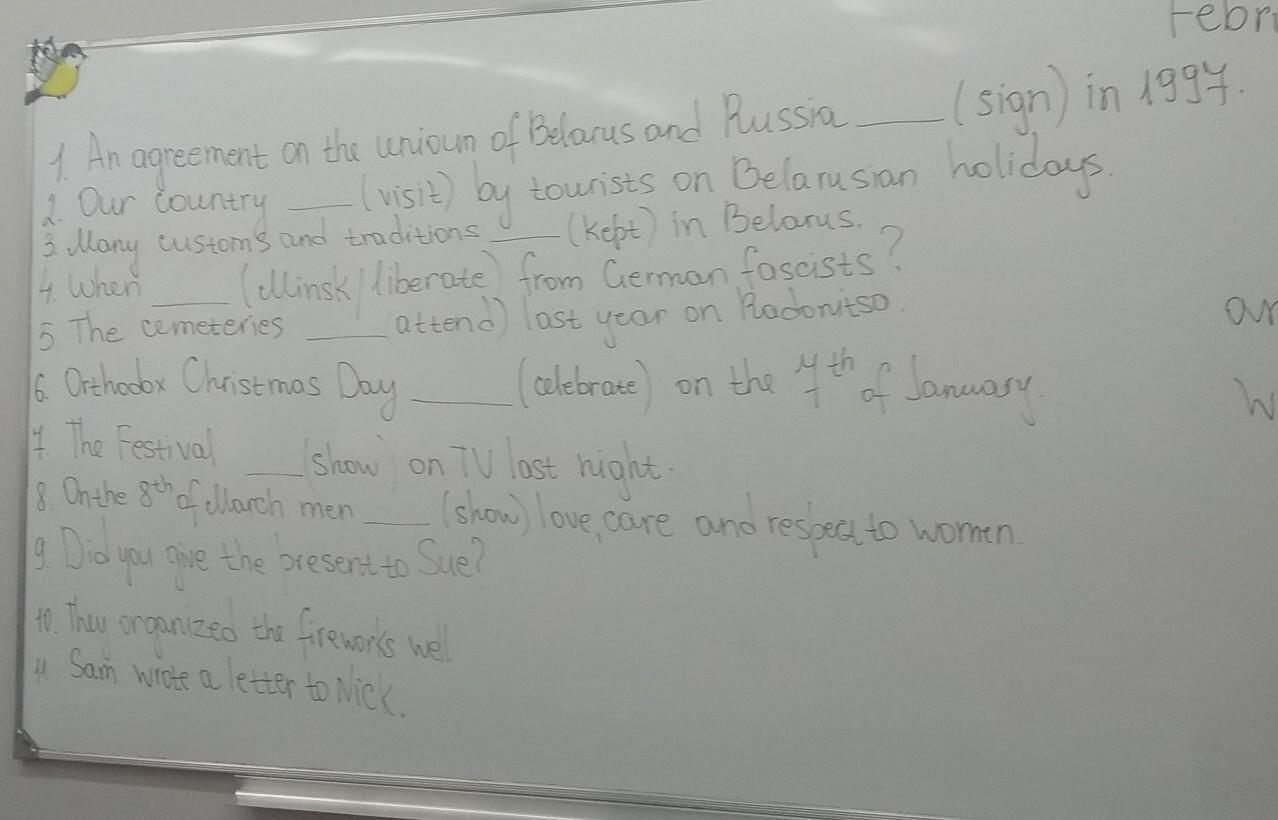 Febr
1. An agreement on the unioun of Belarus and Russia ____ (sign) in 1997.
2. Our country ____ (visit) by tourists on Belarusian holidays.
3. Many customs and traditions ____ (kept) in Belarus.
4. When ____ (Minsk/liberate) from German fascists?
5. The cemeteries ____ (attend) last year on Radonitso.
6. Orthodox Christmas Day ____ (celebrate) on the 7th of January.
7. The Festival ____ (show) on TV last night.
8. On the 8th of March men ____ (show) love, care and respect to women.
9. Did you give the present to Sue?
10. They organized the fireworks well
11 Sam wrote a letter to Nick.
ar
W